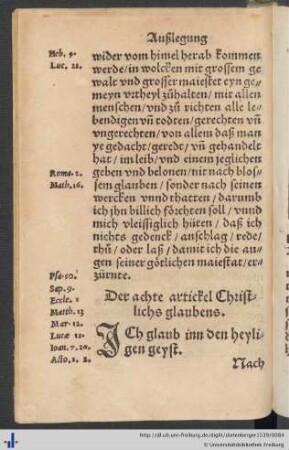 Außlegung
Heb. 9.
Luc. 21.
wider vom himel herab kommen
werde/in wolcken mit grossem ge
walt vnd grosser maiestet eyn ge⸗
meyn vrtheyl zůhalten/ mit allen
menschen/vnd zů richten alle le⸗
bendigen vñ todten/gerechten vñ
vngerechten/von allem daß man
ye gedacht/geredt/ vñ gehandelt
hat/im leib/vnd einem jeglichen
Roma. 2.
Math. 16.
geben vnd belonen/nit nach blos⸗
sem glauben/sonder nach seinen
wercken vnnd thatten/ darumb
ich jhn billich förchten soll/vnnd
mich vleissiglich hüten/ daß ich
nichts gedenck/anschlag/rede/
thů/ oder laß/damit ich die au⸗
gen seiner götlichen maiestat/er⸗
zürnte.
Psa. 50.
Sap. 9.
Eccle. 1
Matth. 13
Mar. 12.
Lucæ 12.
Ioan. 7. 20.
Acto. 1. 2.
Der achte artickel Christ⸗
lichs glaubens.
ICh glaub inn den heyli⸗
gen geyst.
Nach
http://dl.ub.uni-freiburg.de/diglit/dietenberger1539/0084
© Universitätsbibliothek Freiburg